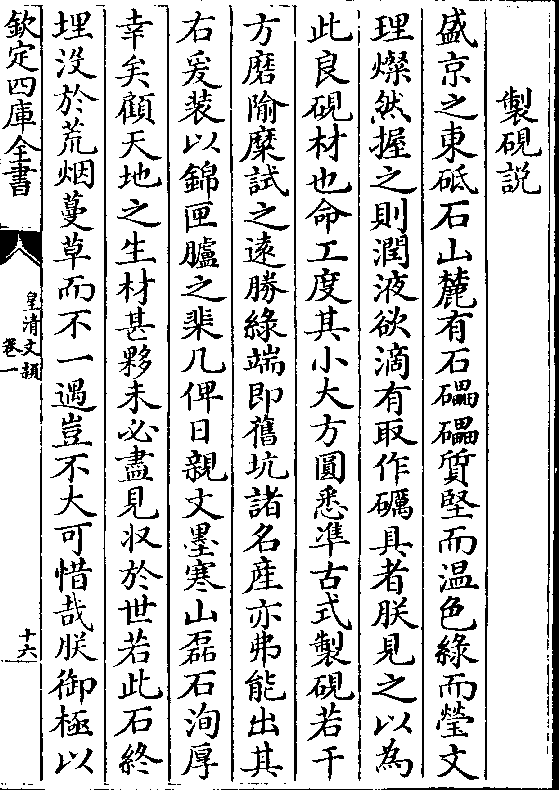 製硯説
盛京之東砥石山麓有石礧礧質堅而温色緑而瑩文
理燦然握之則潤液欲滴有取作礪具者朕見之以為
此良硯材也命工度其小大方圓悉凖古式製硯若干
方磨隃糜試之遠勝緑端即舊坑諸名産亦弗能出其
右爰装以錦匣臚之棐几俾日親文墨寒山磊石洵厚
幸矣顧天地之生材甚夥未必盡見収於世若此石終
埋没於荒烟蔓草而不一遇豈不大可惜哉朕御極以
欽定四庫全書
皇清文穎
卷一
十六